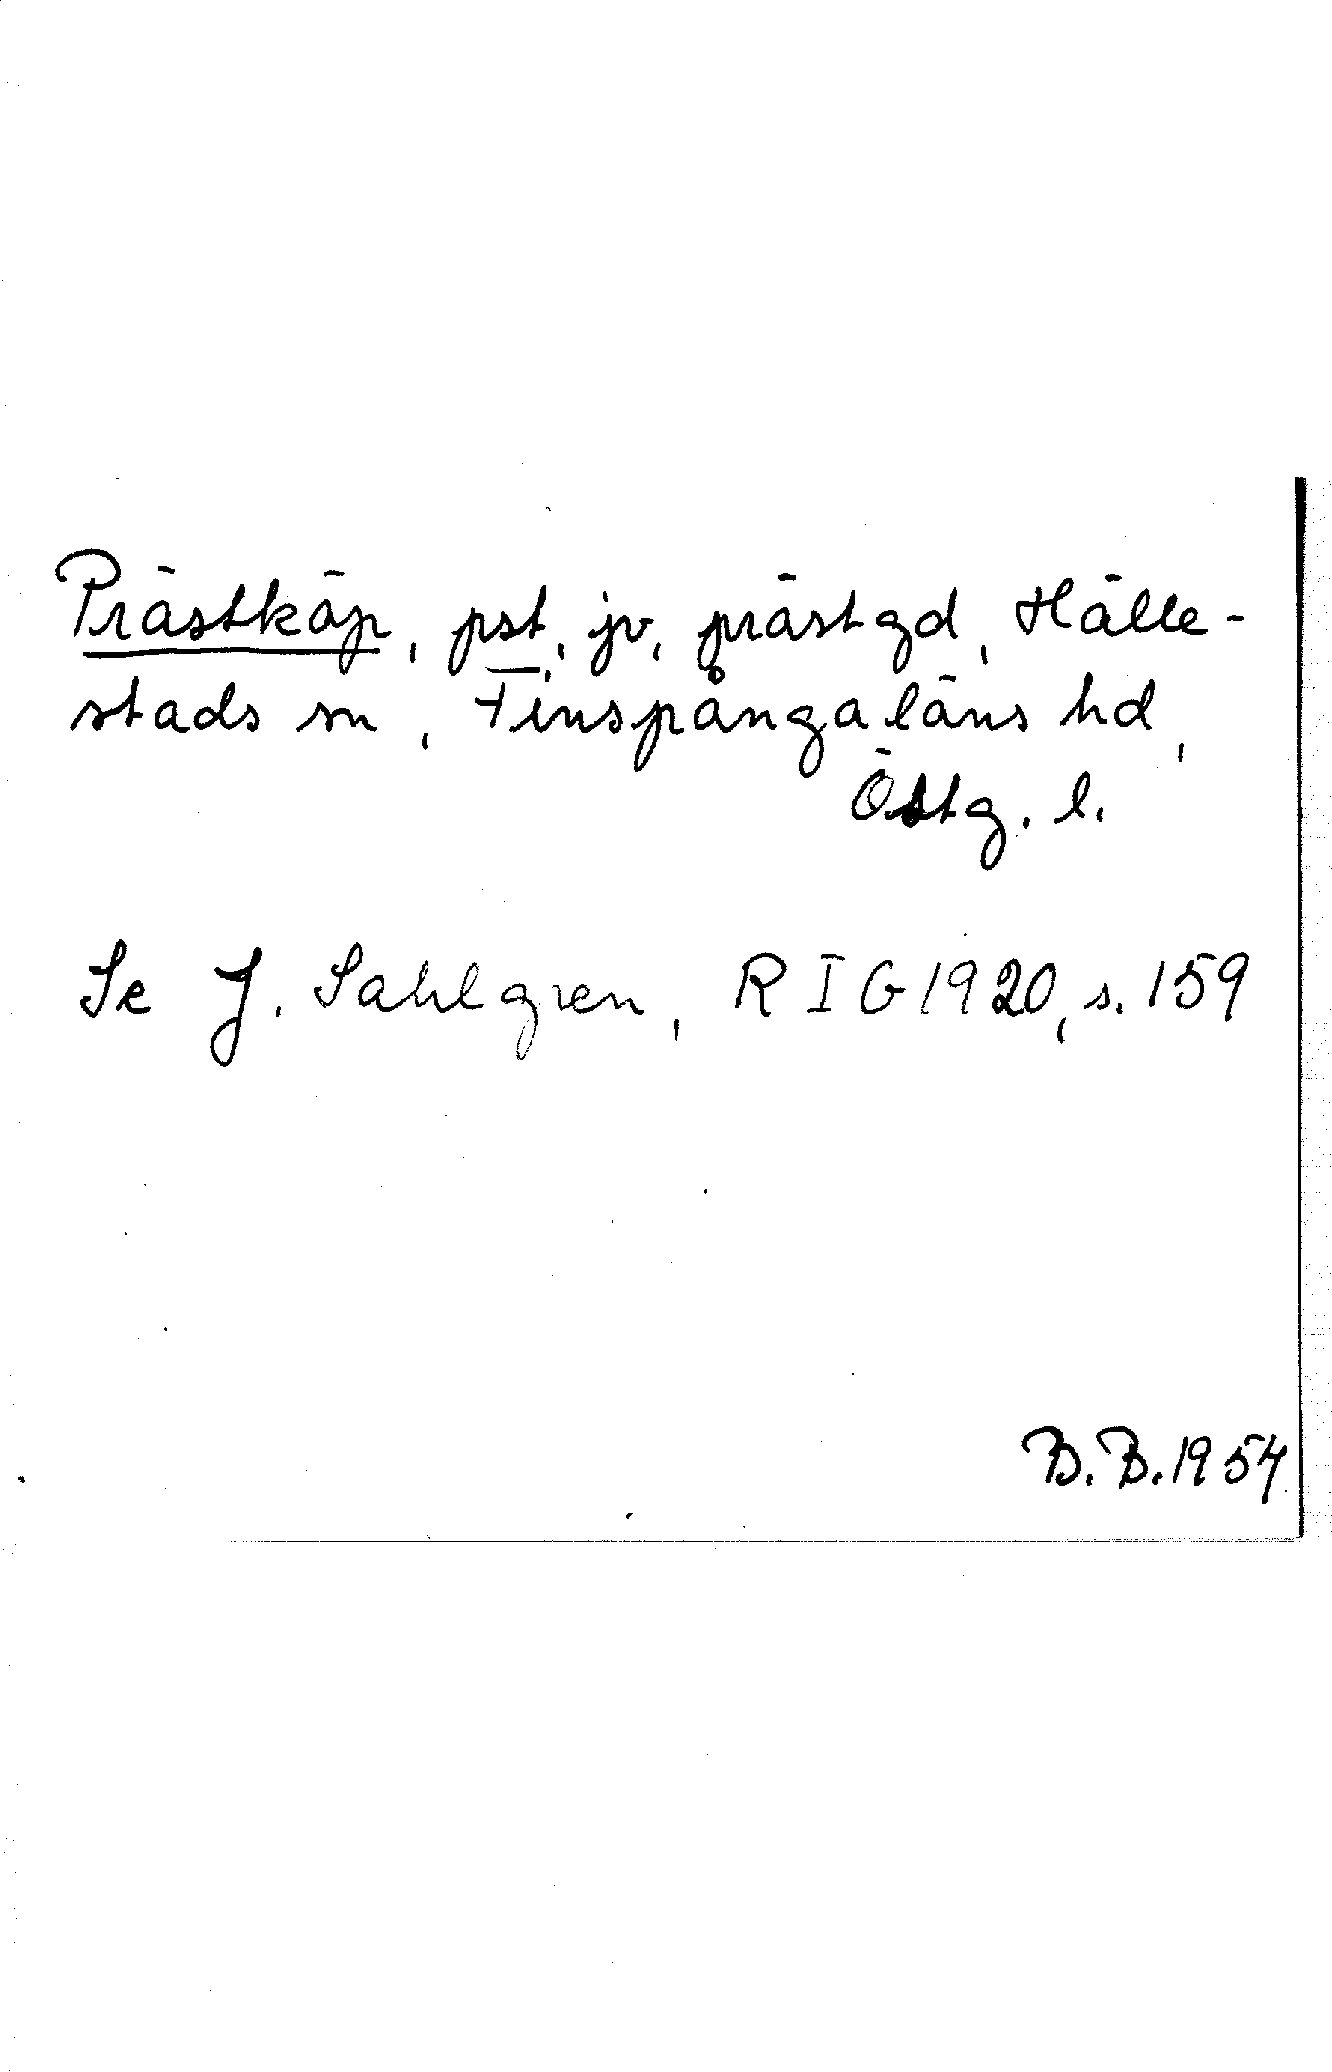 Prästkäp, pst, jv, prästgd, Hälle-
stads sn, Finspångaläns hd,
Östg. l.
Se J. Sahlgren, RIG 1920, s. 159
B.B. 1954